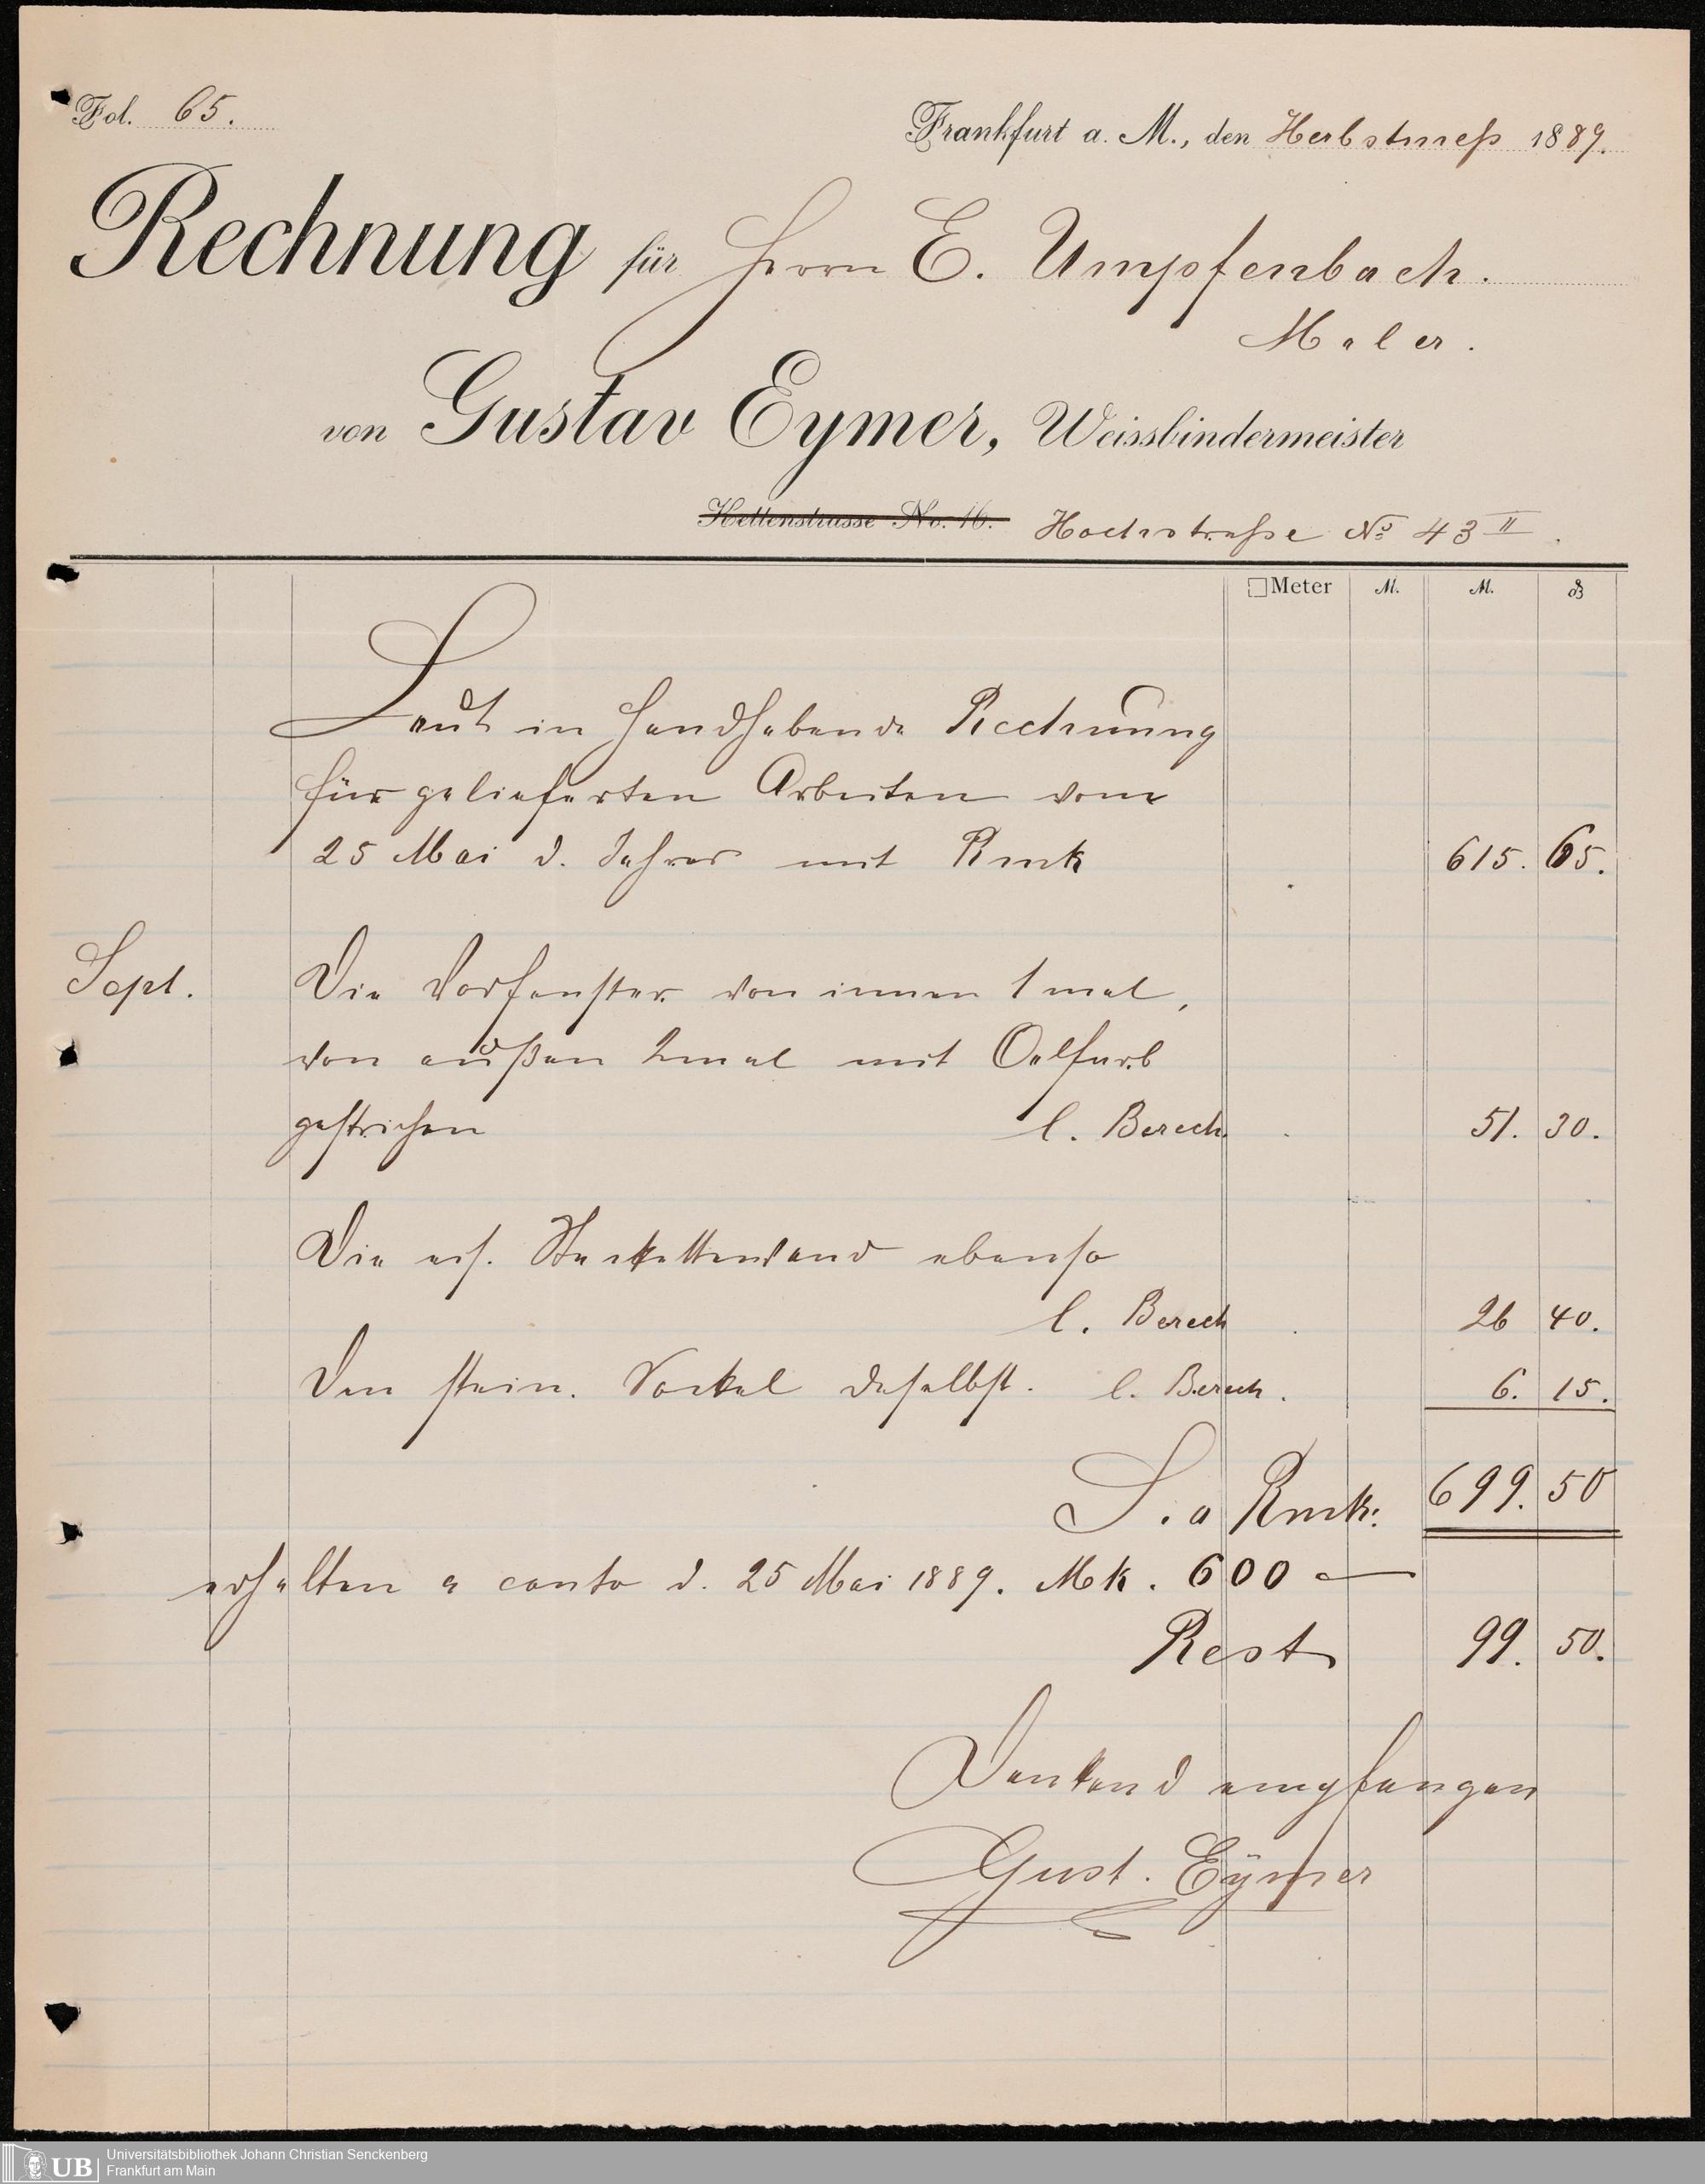 Fol. 65.
Frankfurt a. M., den Herbstmeß 1889.
Rechnung für Herrn E. Umpfenbach.
Maler.
von Gustav Eymer, Weissbindermeister
Kettenstrasse No. 16. Hochstraße No 43 II.
□Meter M. M. ₰
Laut in Handhabende Rechnung
für gelieferten Arbeiten vom
25 Mai d. Jahres mit Rmk 615. 65.
Sept. Die Vorfenster von innen 1 mal,
von außen 2mal mit Oelfarb
gestrichen l. Berech. 51. 30.
Die Stackettenwand ebenso
l. Berech 26 40.
Den stein. Sockel daselbst. l. Berech. 6. 15.
S.a Rmk. 699. 50
erhalten a conto d. 25 Mai 1889. Mk. 600 —
Rest 99. 50.
Dankend empfangen
Gust. Eymer
UB Universitätsbibliothek Johann Christian Senckenberg
Frankfurt am Main